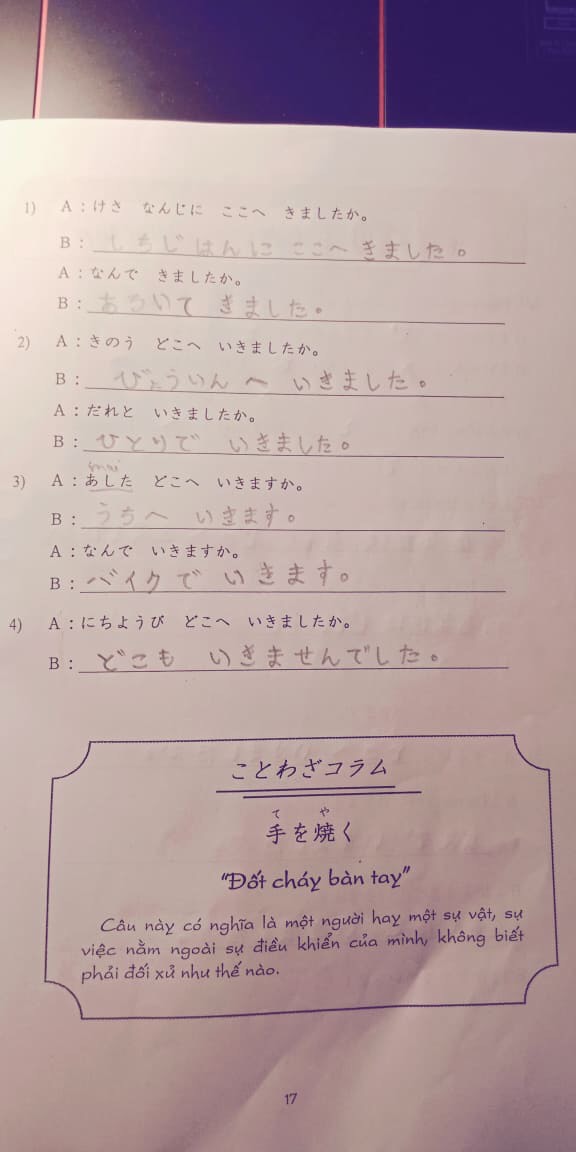 1) A：けさ なんじに ここへ きましたか。
B：しちじはんに ここへ きました。
A：なんで きましたか。
B：あるいて きました。
2) A：きのう どこへ いきましたか。
B：びょういんへ いきました。
A：だれと いきましたか。
B：ひとりで いきました。
3) A：あした どこへ いきますか。
B：うちへ いきます。
A：なんで いきますか。
B：バイクで いきます。
4) A：にちようび どこへ いきましたか。
B：どこも いきませんでした。
ことわざコラム
て や
手を焼く
"Đốt cháy bàn tay"
Câu này có nghĩa là một người hay một sự vật, sự
việc nằm ngoài sự điều khiển của mình, không biết
phải đối xử như thế nào.
17